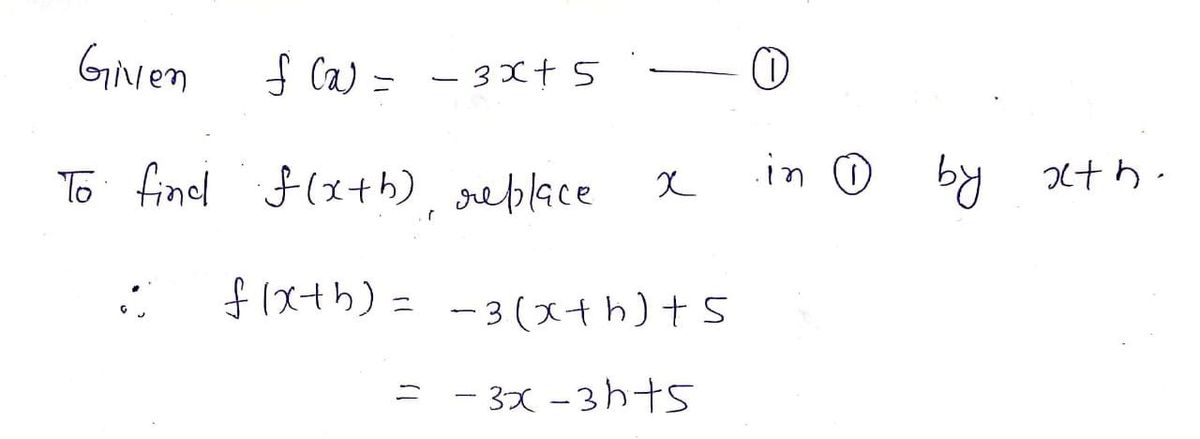 Given f(x) = - 3x + 5 — ①
To find f(x+h), replace x in ① by x+h.
∴ f(x+h) = -3(x+h)+5
= - 3x -3h+5